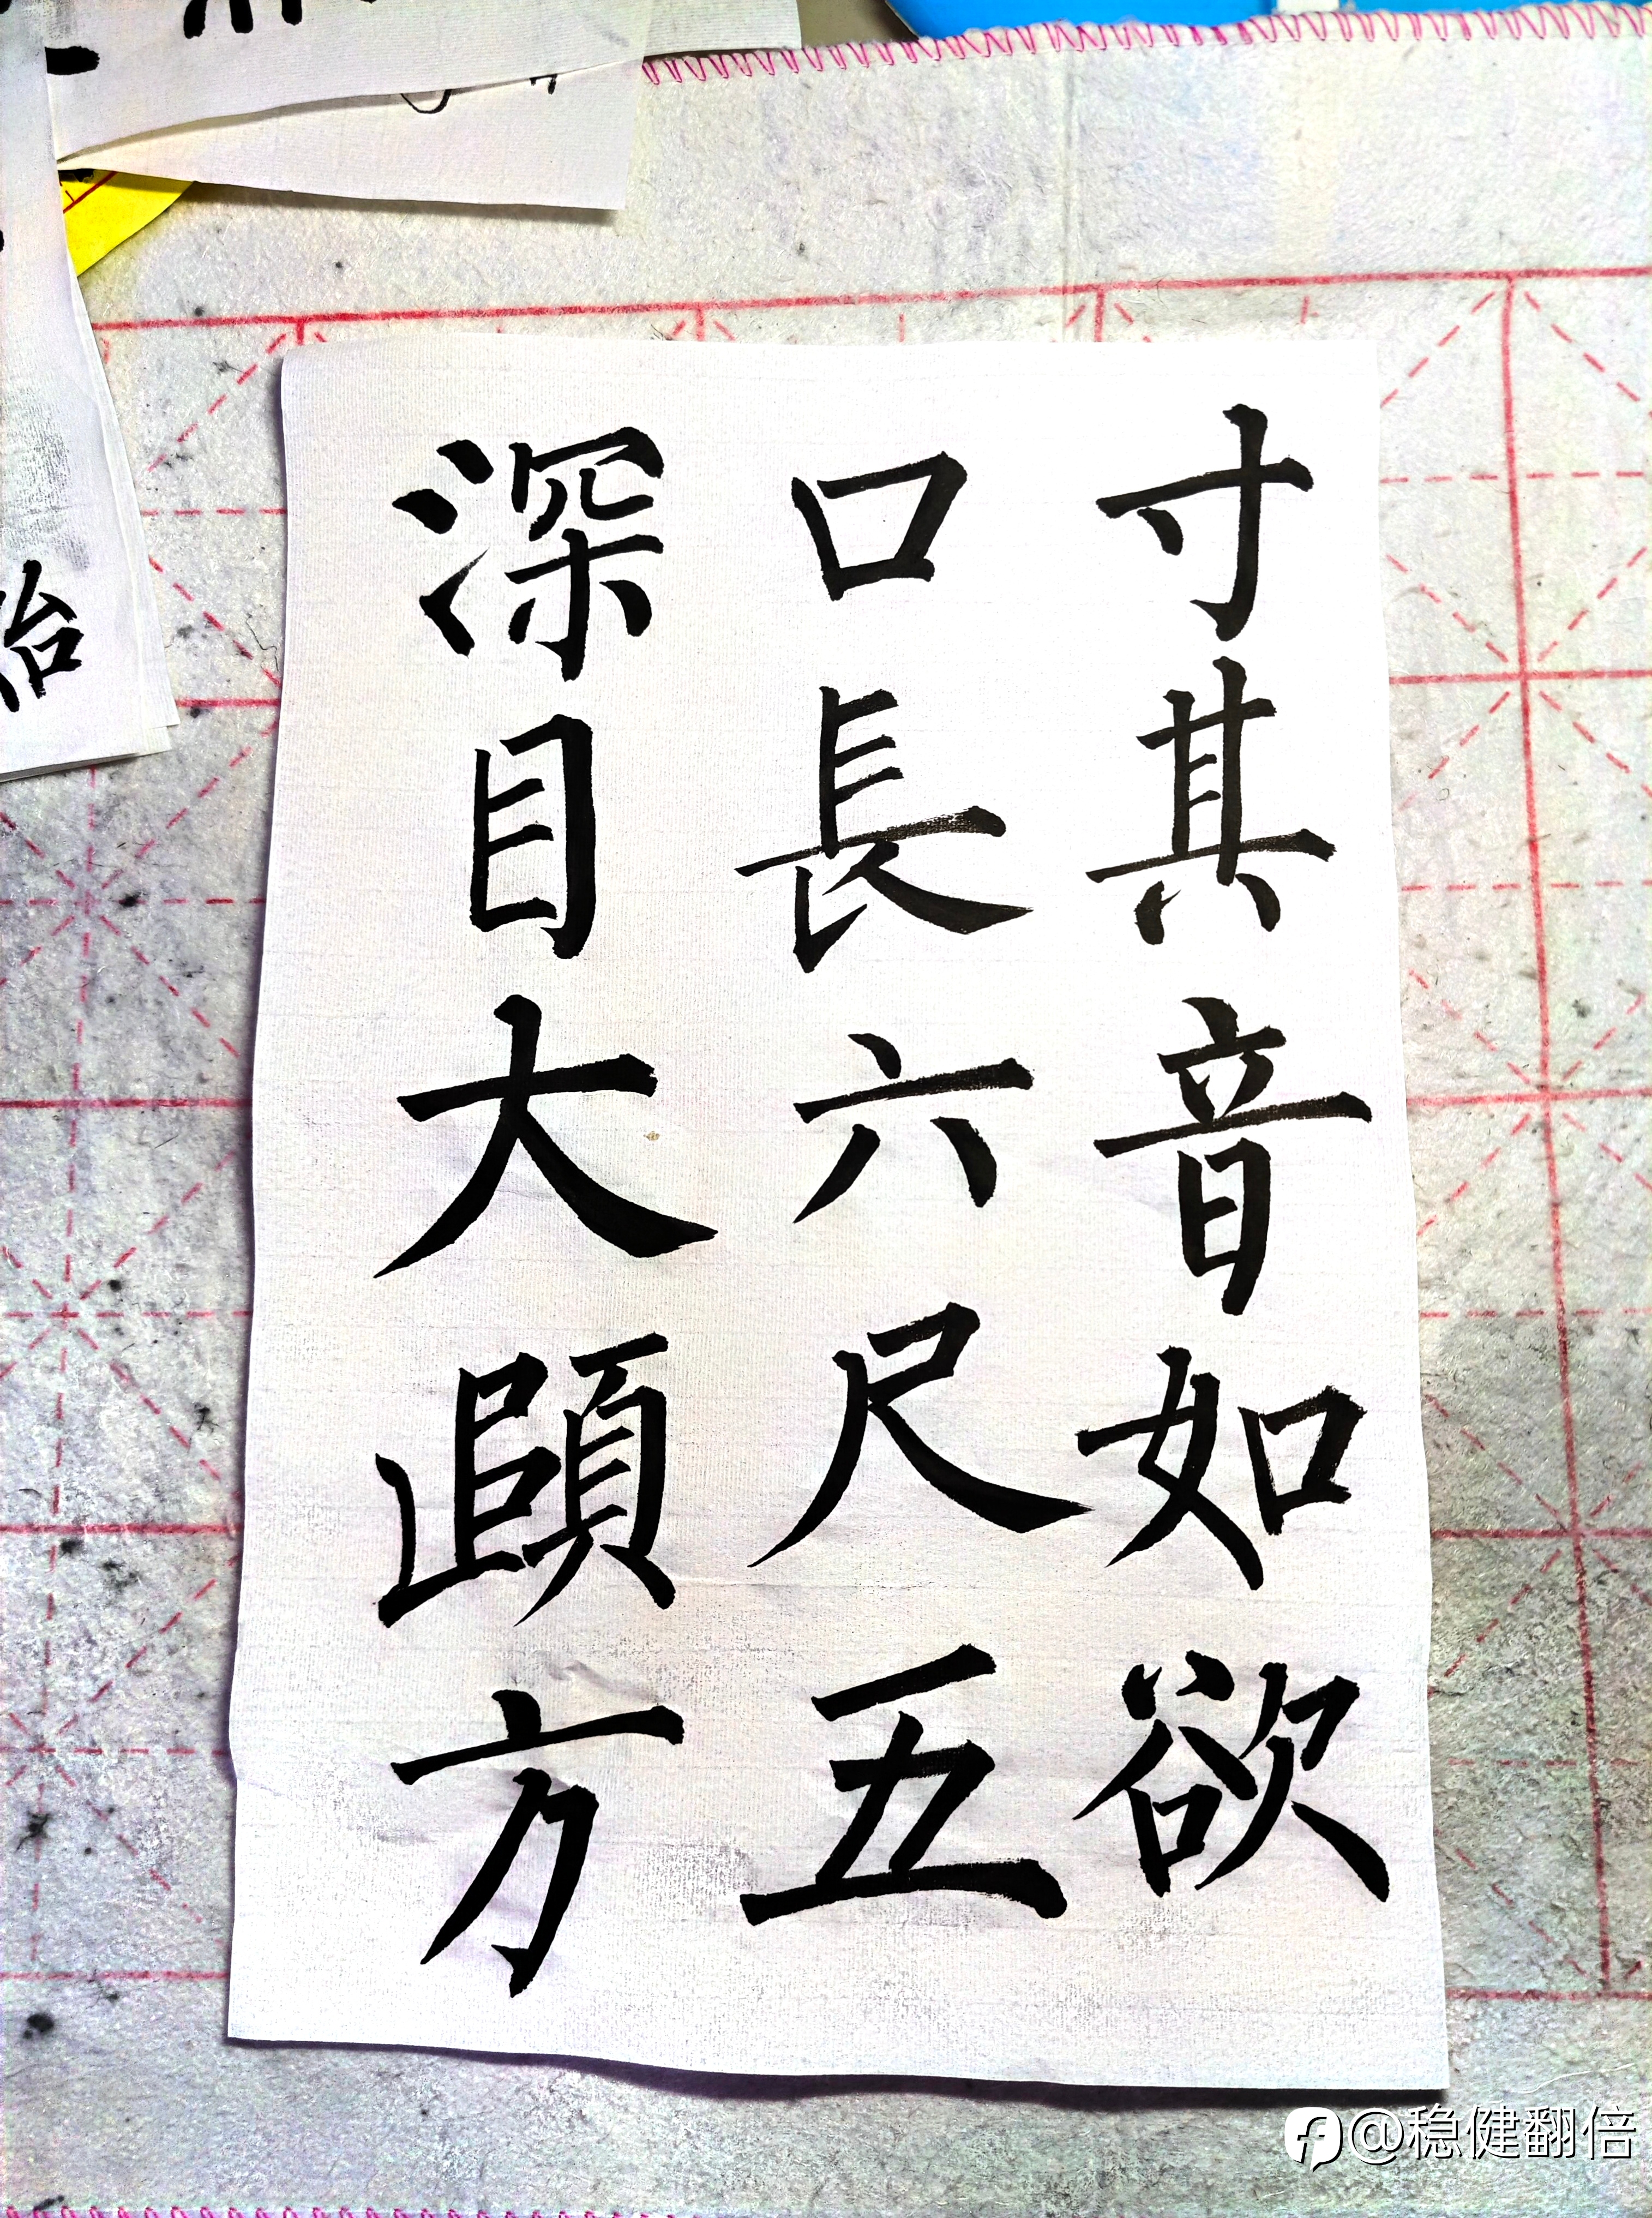 寸其音如欲
口長六尺五
深目大頤方
治
@稳健翻倍